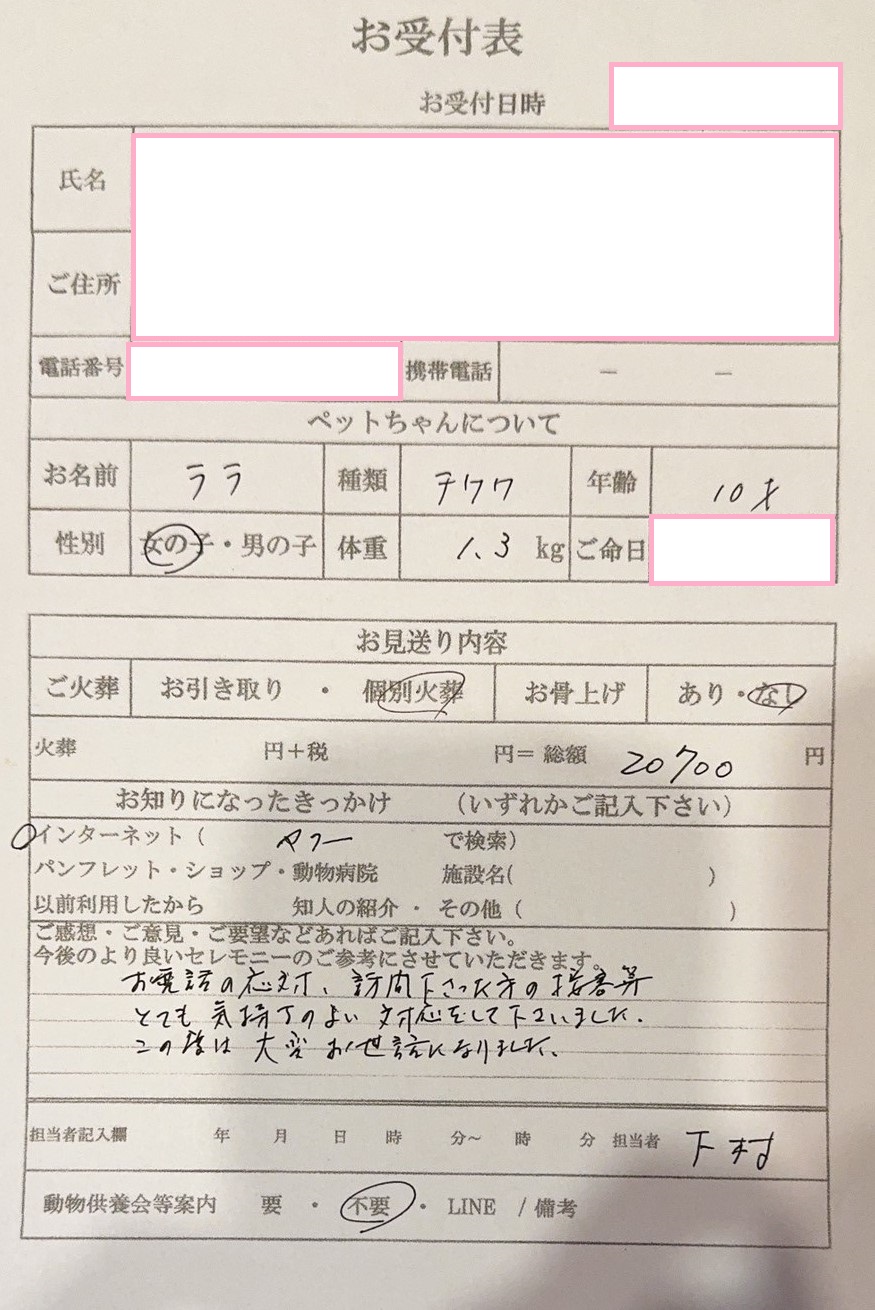 お受付表
お受付日時
氏名
ご住所
電話番号 携帯電話 － －
ペットちゃんについて
お名前 ララ 種類 チワワ 年齢 10才
性別 女の子・男の子 体重 1.3 kg ご命日
お見送り内容
ご火葬 お引き取り ・ 個別火葬 お骨上げ あり・なし
火葬 円＋税 円＝ 総額 20700 円
お知りになったきっかけ （いずれかご記入下さい）
インターネット（ ヤフー で検索）
パンフレット・ショップ・動物病院 施設名( )
以前利用したから 知人の紹介 ・ その他（ ）
ご感想・ご意見・ご要望などあればご記入下さい。
今後のより良いセレモニーのご参考にさせていただきます。
お電話の応対、訪問下さった方の接客等
とても気持ちのよい対応をして下さいました。
この度は大変お世話になりました。
担当者記入欄 年 月 日 時 分～ 時 分 担当者 下村
動物供養会等案内 要 ・ 不要 ・ LINE / 備考